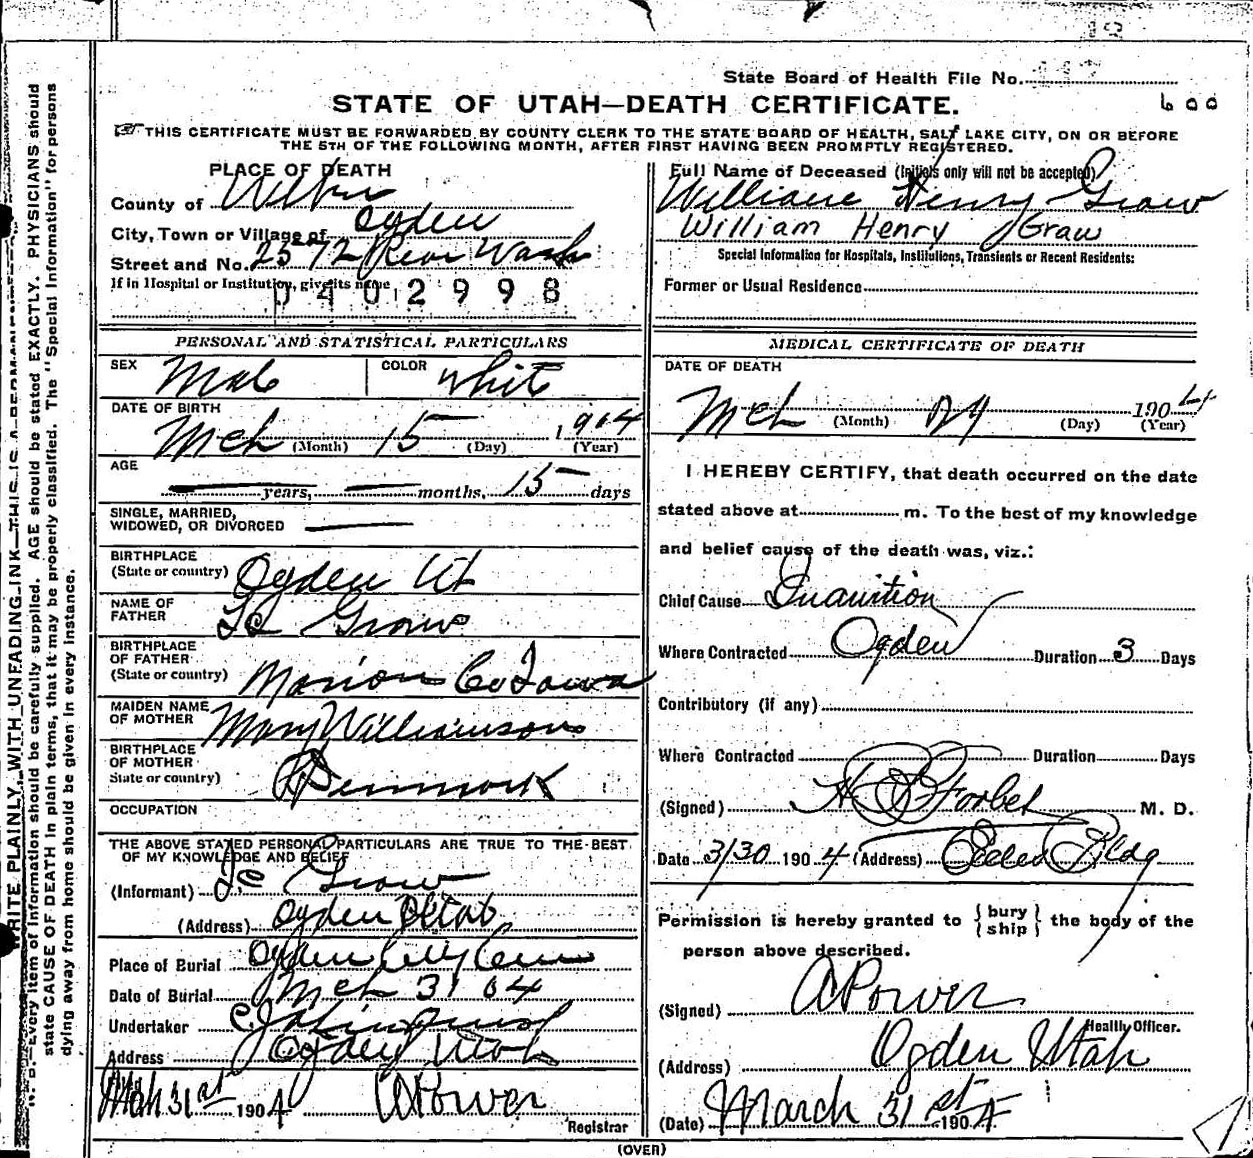 State Board of Health File No.
STATE OF UTAH—DEATH CERTIFICATE.
600
THIS CERTIFICATE MUST BE FORWARDED BY COUNTY CLERK TO THE STATE BOARD OF HEALTH, SALT LAKE CITY, ON OR BEFORE
THE 5TH OF THE FOLLOWING MONTH, AFTER FIRST HAVING BEEN PROMPTLY REGISTERED.
WRITE PLAINLY, WITH UNFADING INK—THIS IS A PERMANENT
N. B.—Every item of information should be carefully supplied. AGE should be stated EXACTLY. PHYSICIANS should
state CAUSE OF DEATH in plain terms, that it may be properly classified. The "Special Information" for persons
dying away from home should be given in every instance.
PLACE OF DEATH
County of Weber
City, Town or Village of Ogden
Street and No. 2372 Rear Wash
If in Hospital or Institution, give its name
0402998
PERSONAL AND STATISTICAL PARTICULARS
SEX Male COLOR White
DATE OF BIRTH
Mch (Month) 15 (Day) 1904 (Year)
AGE
— years, — months, 15 days
SINGLE, MARRIED,
WIDOWED, OR DIVORCED —
BIRTHPLACE
(State or country) Ogden Ut
NAME OF
FATHER Grow
BIRTHPLACE
OF FATHER
(State or country) Marion Co Iowa
MAIDEN NAME
OF MOTHER Mary Williamson
BIRTHPLACE
OF MOTHER
State or country) Denmark
OCCUPATION
THE ABOVE STATED PERSONAL PARTICULARS ARE TRUE TO THE BEST
OF MY KNOWLEDGE AND BELIEF
(Informant) Grow
(Address) Ogden Utah
Place of Burial Ogden City Cem
Date of Burial Mch 31 04
Undertaker
Address Ogden Utah
Mch 31st 1904 A Power
Registrar
Full Name of Deceased (Initials only will not be accepted)
William Henry Grow
William Henry Graw
Special Information for Hospitals, Institutions, Transients or Recent Residents:
Former or Usual Residence
MEDICAL CERTIFICATE OF DEATH
DATE OF DEATH
Mch (Month) (Day) 1904 (Year)
I HEREBY CERTIFY, that death occurred on the date
stated above at m. To the best of my knowledge
and belief cause of the death was, viz.:
Chief Cause Inanition
Where Contracted Ogden Duration 3 Days
Contributory (if any)
Where Contracted Duration Days
(Signed) Forbes M. D.
Date 3/30 1904 (Address) Eccles Bldg
Permission is hereby granted to { bury ship } the body of the
person above described.
(Signed) A Power
Health Officer.
(Address) Ogden Utah
(Date) March 31st 1904
(OVER)